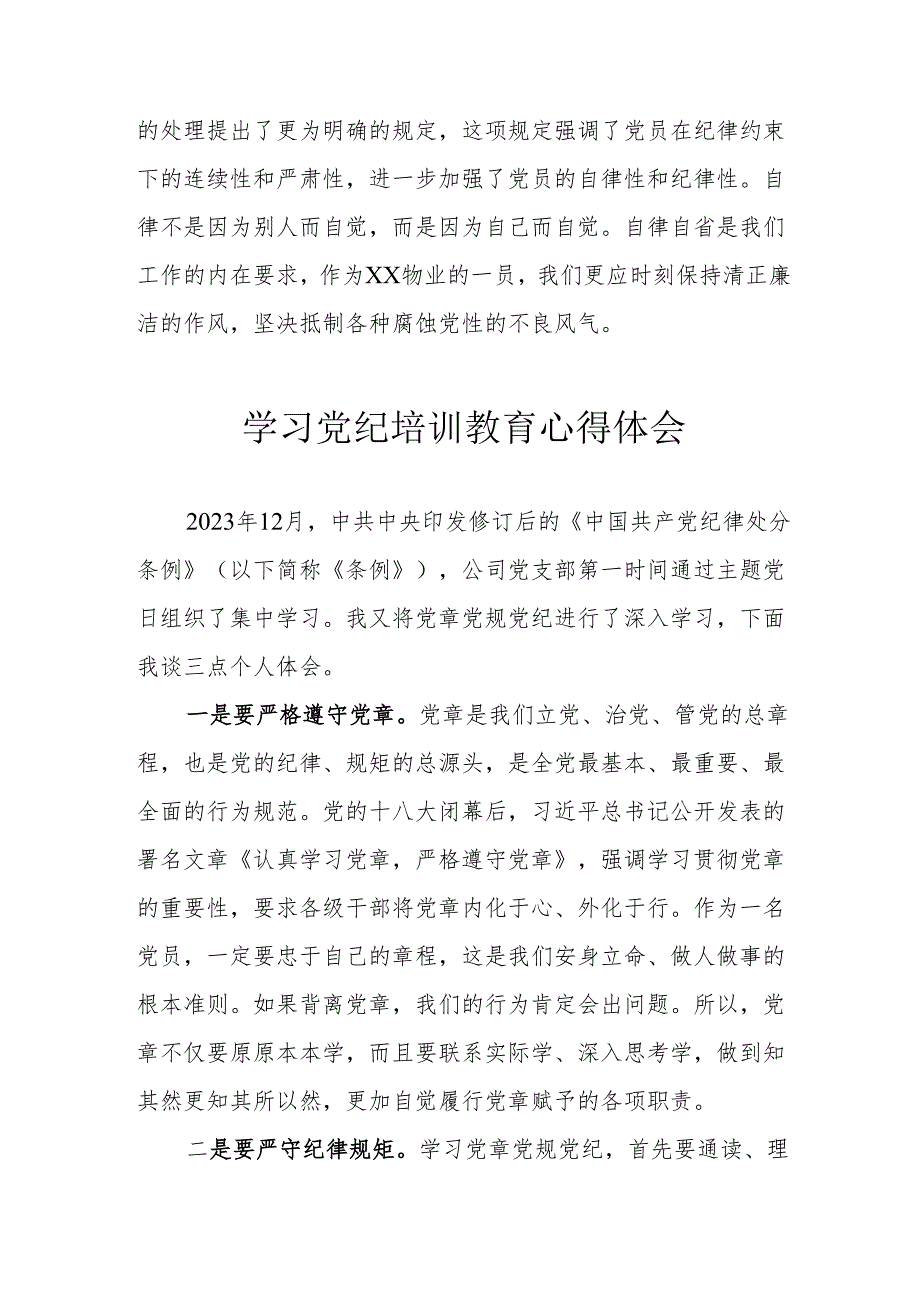 的处理提出了更为明确的规定，这项规定强调了党员在纪律约束
下的连续性和严肃性，进一步加强了党员的自律性和纪律性。自
律不是因为别人而自觉，而是因为自己而自觉。自律自省是我们
工作的内在要求，作为XX物业的一员，我们更应时刻保持清正廉
洁的作风，坚决抵制各种腐蚀党性的不良风气。
学习党纪培训教育心得体会
2023年12月，中共中央印发修订后的《中国共产党纪律处分
条例》（以下简称《条例》），公司党支部第一时间通过主题党
日组织了集中学习。我又将党章党规党纪进行了深入学习，下面
我谈三点个人体会。
一是要严格遵守党章。党章是我们立党、治党、管党的总章
程，也是党的纪律、规矩的总源头，是全党最基本、最重要、最
全面的行为规范。党的十八大闭幕后，习近平总书记公开发表的
署名文章《认真学习党章，严格遵守党章》，强调学习贯彻党章
的重要性，要求各级干部将党章内化于心、外化于行。作为一名
党员，一定要忠于自己的章程，这是我们安身立命、做人做事的
根本准则。如果背离党章，我们的行为肯定会出问题。所以，党
章不仅要原原本本学，而且要联系实际学、深入思考学，做到知
其然更知其所以然，更加自觉履行党章赋予的各项职责。
二是要严守纪律规矩。学习党章党规党纪，首先要通读、理